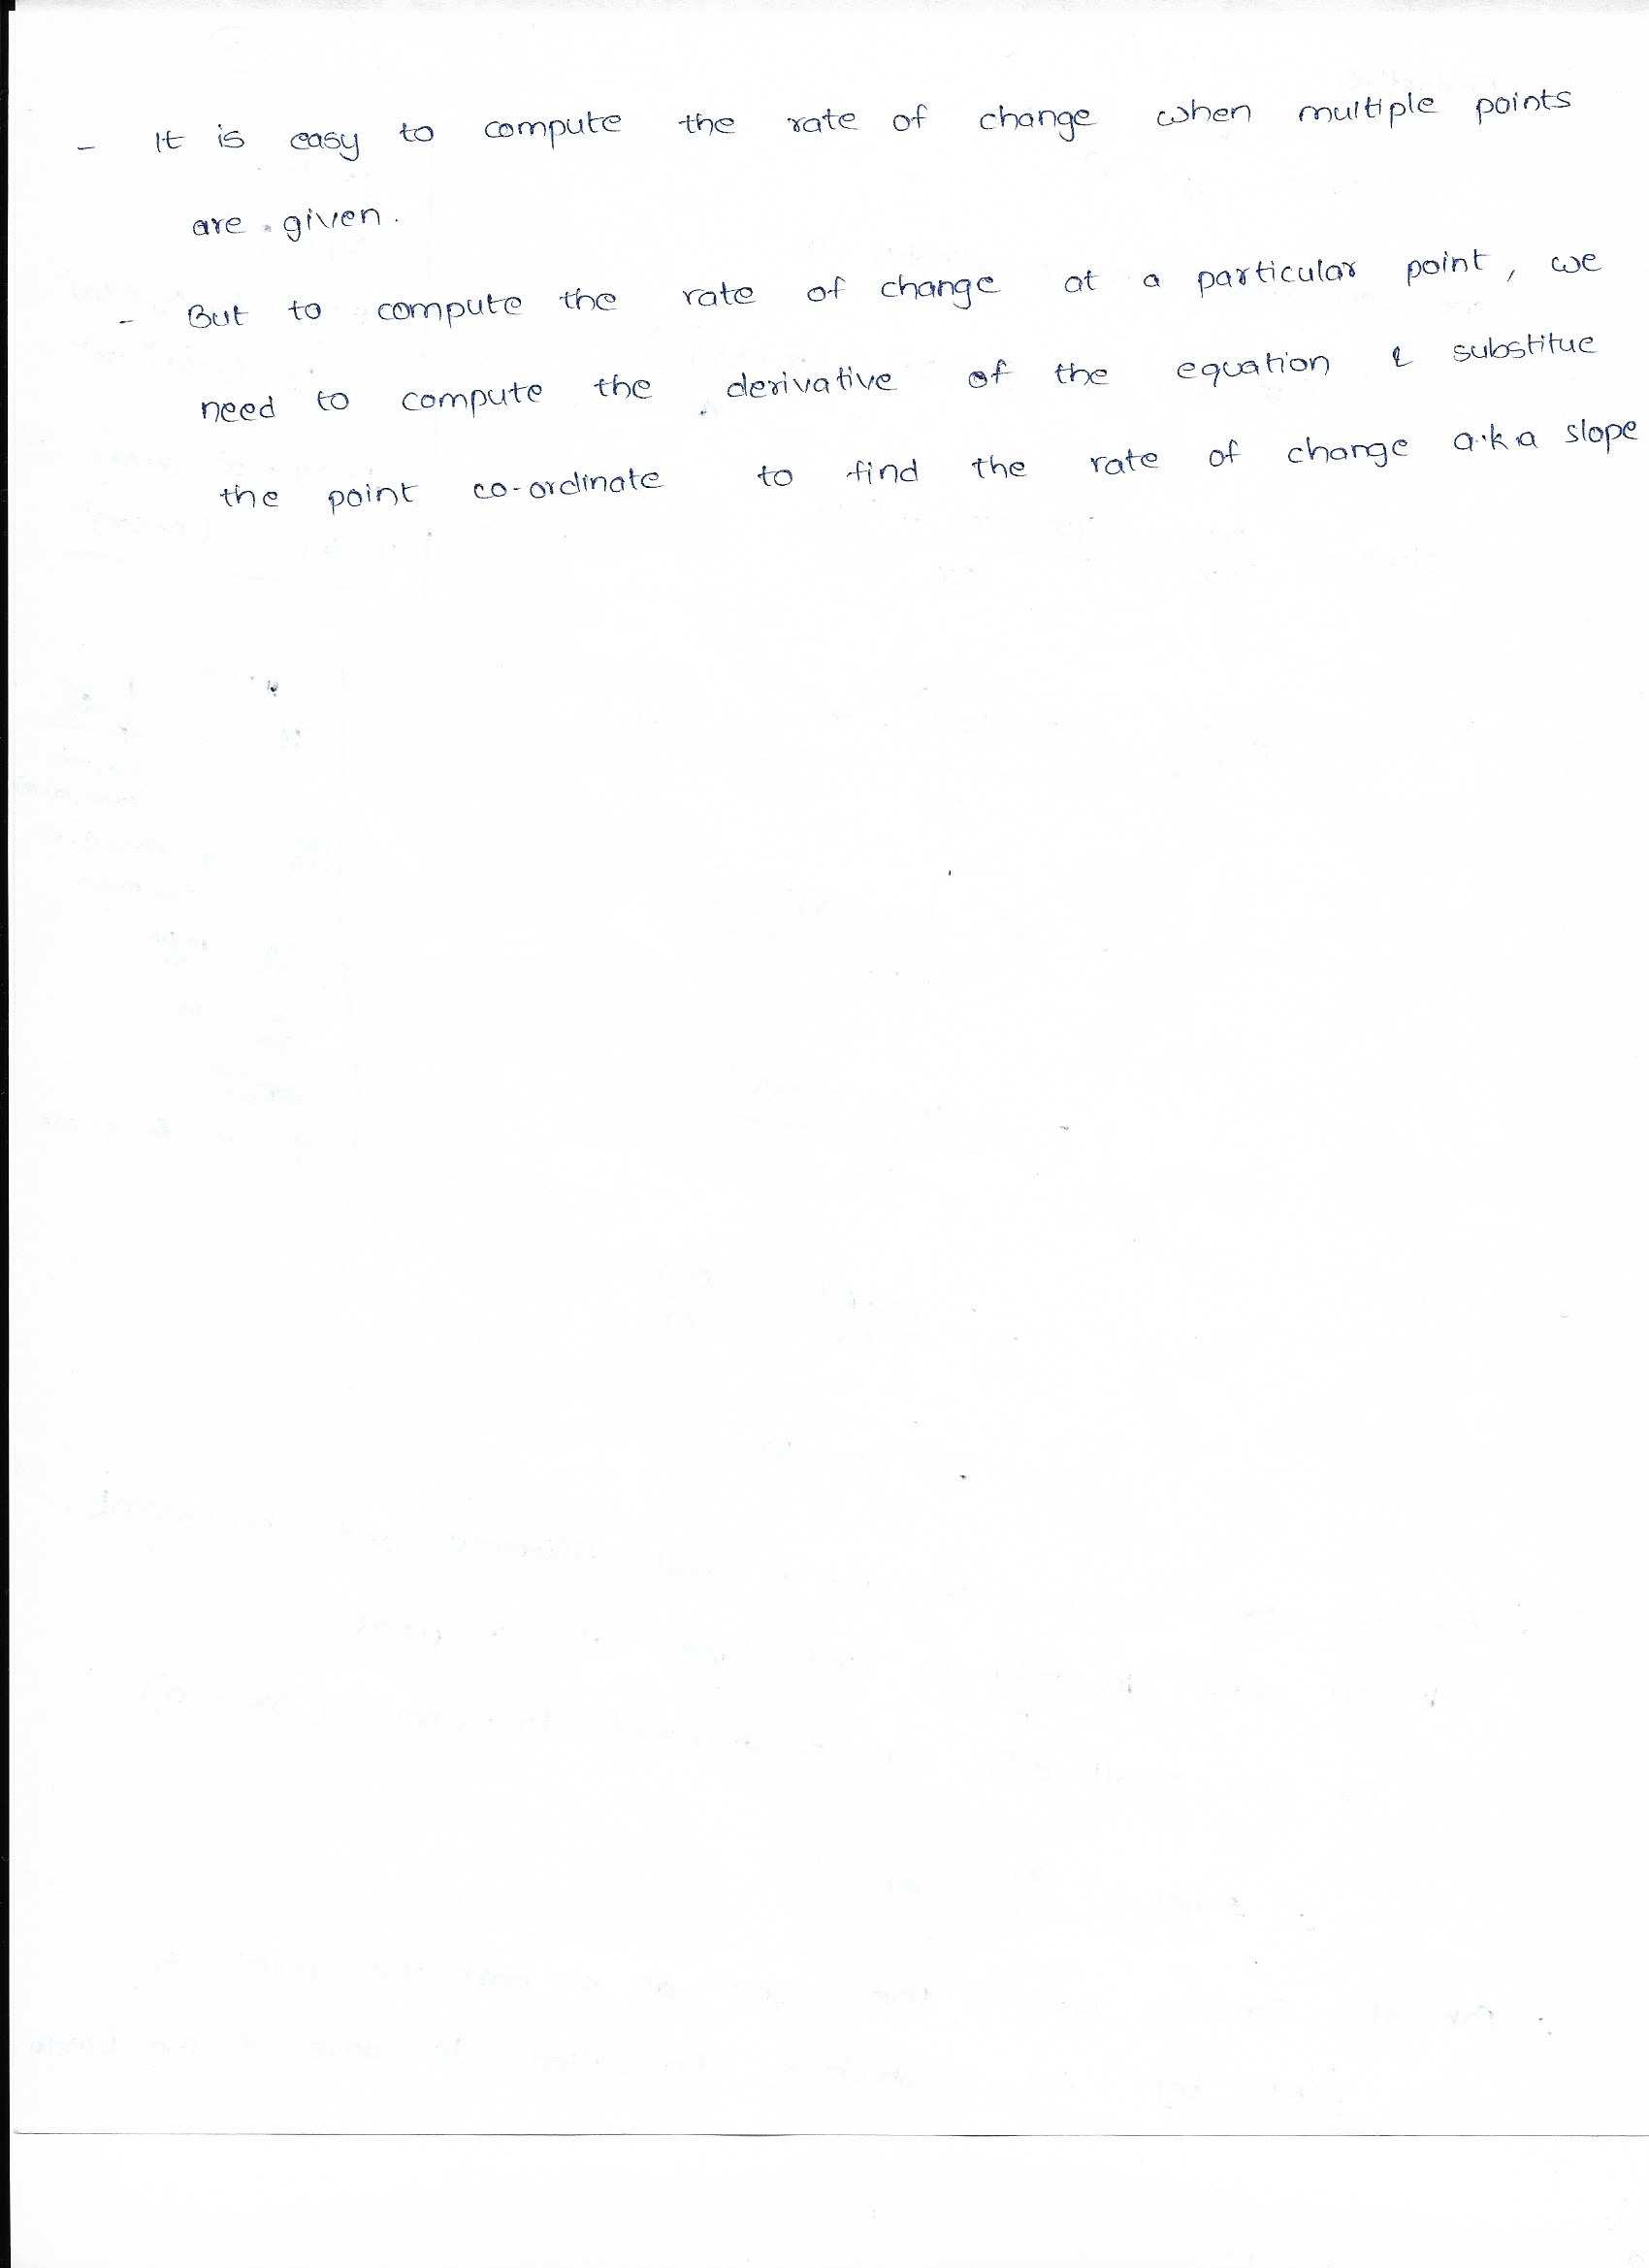 - It is easy to compute the rate of change when multiple points
are given.
- But to compute the rate of change at a particular point, we
need to compute the derivative of the equation & substitue
the point co-ordinate to find the rate of change a.k.a slope